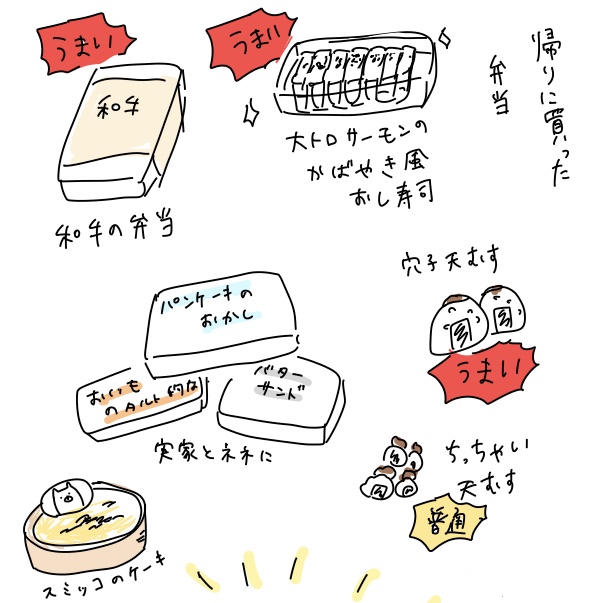 帰りに買った
弁当
うまい
和牛
和牛の弁当
うまい
大トロサーモンの
かばやき風
おし寿司
穴子天むす
うまい
パンケーキの
おかし
おいも
のタルト的な
バター
サンド
実家とネネに
ちっちゃい
天むす
普通
スミッコのケーキ